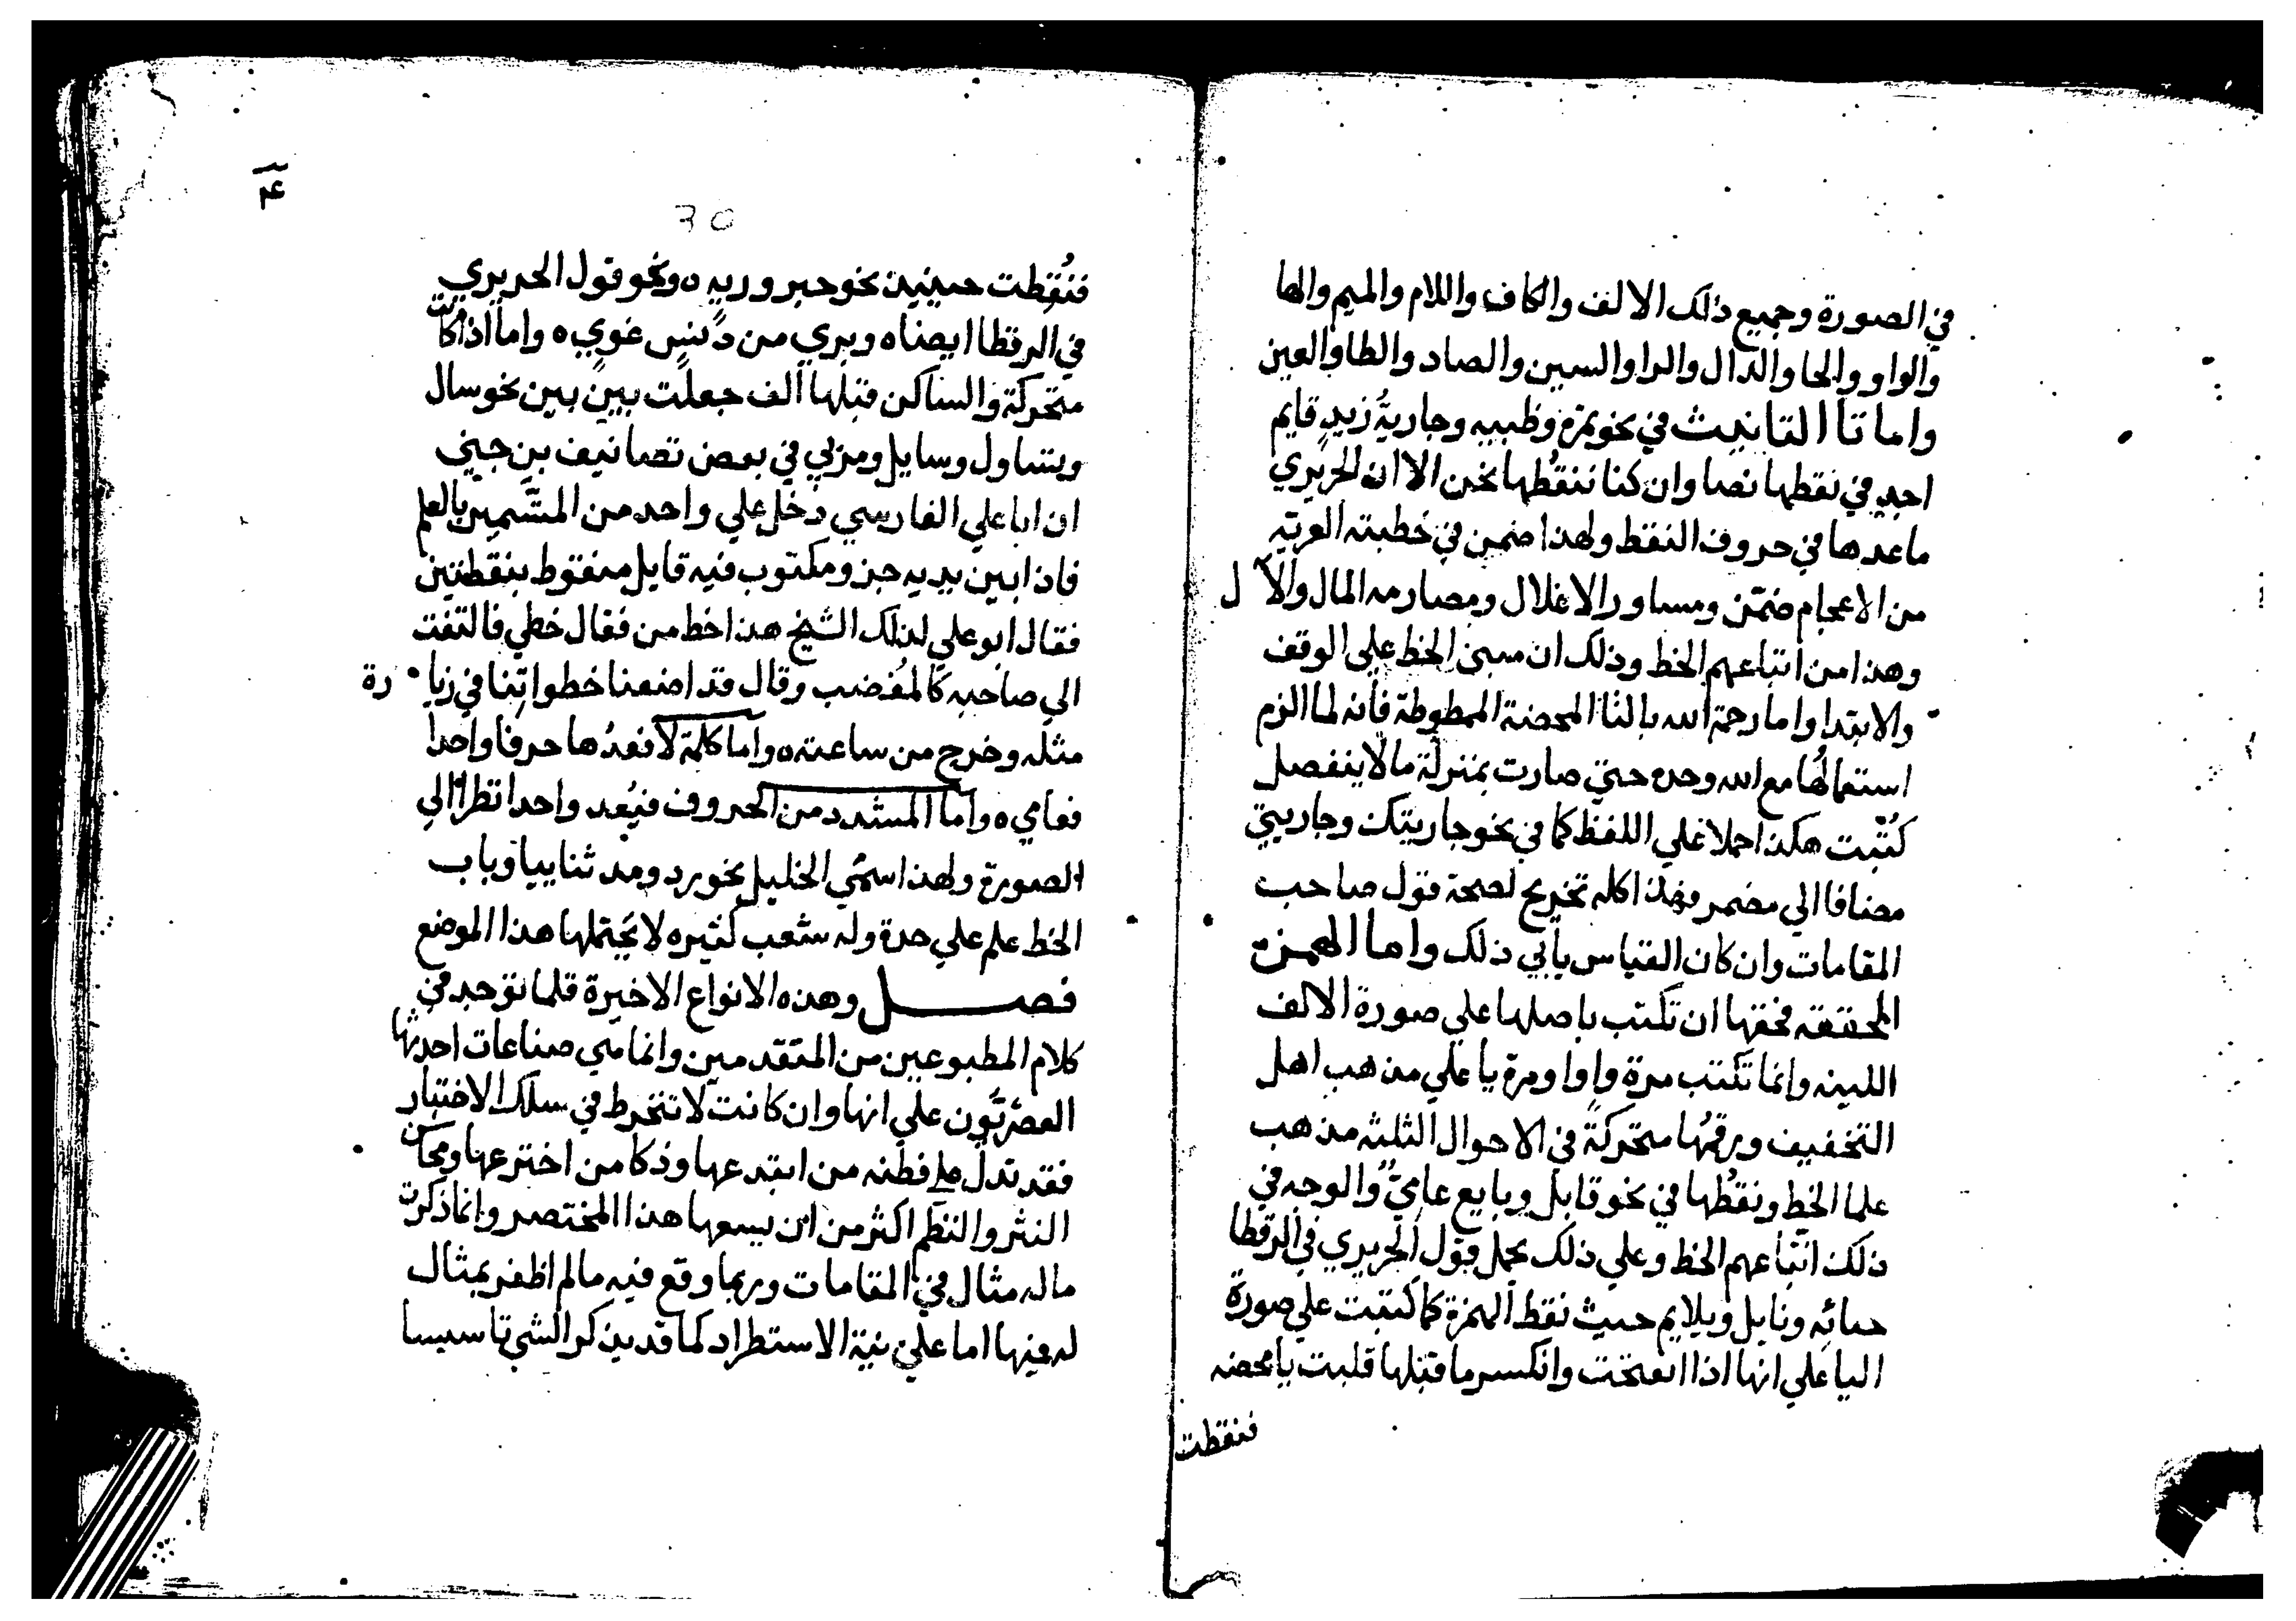 في الصورة وجميع ذلك الالف والكاف واللام والميم والها
والواو والحا والدال والرا والسين والصاد والطا والعين
واما تا التانيث في نحو تمرة وظبيه وجارية زيد قايم
اجد في نقطها نصا وان كنا ننقطها نحن الا ان الحريري
ما عدها في حروف النقط ولهذا ضمن في خطبته العرية
من الاعجام ضمن ومساور الاغلال ومصارمه المال والآل
وهذا من اتباعهم الخط وذلك ان مبنى الخط على الوقف
والابتدا واما رحمة الله بالتا المحضة الممطوطة فانه لما الزم
استعمالها مع الله وحده حتي صارت بمنزلة ما لا ينفصل
كتبت هكذا حملا علي اللفظ كما في نحو جاريتك وجاريتي
مضافا الي مضمر وهذا كله تخريج لصحة قول صاحب
المقامات وان كان القياس يابي ذلك واما الهمزة
المحققه فحقها ان تكتب باصلها علي صورة الالف
اللينه وانما تكتب مرة واوا ومرة يا علي مذهب اهل
التخفيف ورقمها متحركة في الاحوال الثلثه مذهب
علما الخط ونقطها في نحو قايل وبايع عامي والوجه في
ذلك اتباعهم الخط وعلي ذلك يحمل قول الحريري في الرقطا
حبائه ونايل ويلايم حيث نقط الهمزة كما كتبت علي صورة
اليا علي انها اذا انفتحت وانكسر ما قبلها قلبت يا محضه
فنقطت
٣٠
فنُقِطت حينيذ نحو حبر وريه ه ونحو قول الحريري
في الرقطا ايضا ه وبري من دنس غوي ه واما اذا كانت
متحركة والساكن قبلها الف جعلت بين بين نحو سال
ويتساول وسايل ومر بي في بعض تصانيف بن جني
ان ابا علي الفارسي دخل علي واحد من المتسمين بالعلم
فاذا بين يديه جزو مكتوب فيه قايل منقوط بنقطتين
فقال ابو علي لذلك الشيخ هذا خط من فقال خطي فالتفت
الي صاحبه كالمغضب وقال قد اضعنا خطواتنا في زيارة
مثله وخرج من ساعته ه واما كلمة لا نعدها حرفا واحدا
فعامي ه واما المشدد من الحروف فيُعد واحدا نظرا الي
الصورة ولهذا سمي الخليل نحو رد ومد ثناييا وباب
الخط علم علي حدة وله شعب كثيره لا يحتملها هذا الموضع
فصل وهذه الانواع الاخيرة قلما توجد في
كلام المطبوعين من المتقدمين وانما هي صناعات احدثها
العصريون علي انها وان كانت لا تنخرط في سلك الاختيار
فقد تدل علي فطنه من ابتدعها وذكا من اخترعها ومحاسن
النثر والنظم اكثر من ان يسعها هذا المختصر وانما ذكرت
ما له مثال في المقامات وربما وقع فيه ما لم اظفر بمثال
له فيها اما علي نية الاستطراد كما قد يذكر الشي تاسيسا